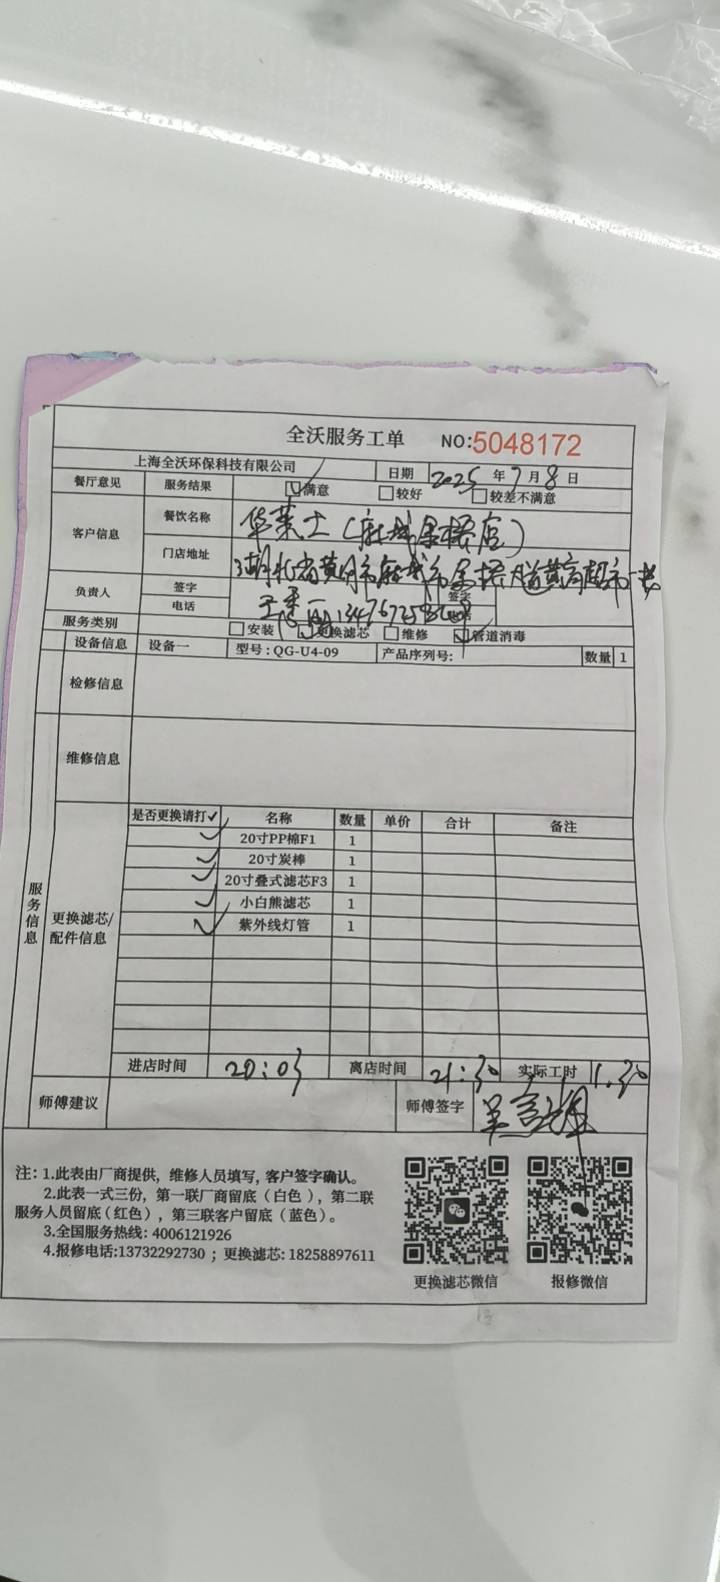 全沃服务工单 NO:5048172
上海全沃环保科技有限公司 日期 2025 年 7 月 8 日
餐厅意见 服务结果 满意 较好 较差不满意
客户信息 餐饮名称 华莱士(麻城金桥店)
门店地址 湖北省黄冈市麻城市金桥大道黄商超市一楼
负责人 签字 签字
电话
服务类别 安装 更换滤芯 维修 管道消毒
设备信息 设备一 型号:QG-U4-09 产品序列号: 数量 1
检修信息
维修信息
服务信息
更换滤芯/配件信息
是否更换请打✓ 名称 数量 单价 合计 备注
✓ 20寸PP棉F1 1
✓ 20寸炭棒 1
✓ 20寸叠式滤芯F3 1
✓ 小白熊滤芯 1
✓ 紫外线灯管 1
进店时间 20:03 离店时间 21:30 实际工时 1.30
师傅建议 师傅签字
注:1.此表由厂商提供,维修人员填写,客户签字确认。
2.此表一式三份,第一联厂商留底(白色),第二联
服务人员留底(红色),第三联客户留底(蓝色)。
3.全国服务热线:4006121926
4.报修电话:13732292730;更换滤芯:18258897611
更换滤芯微信 报修微信